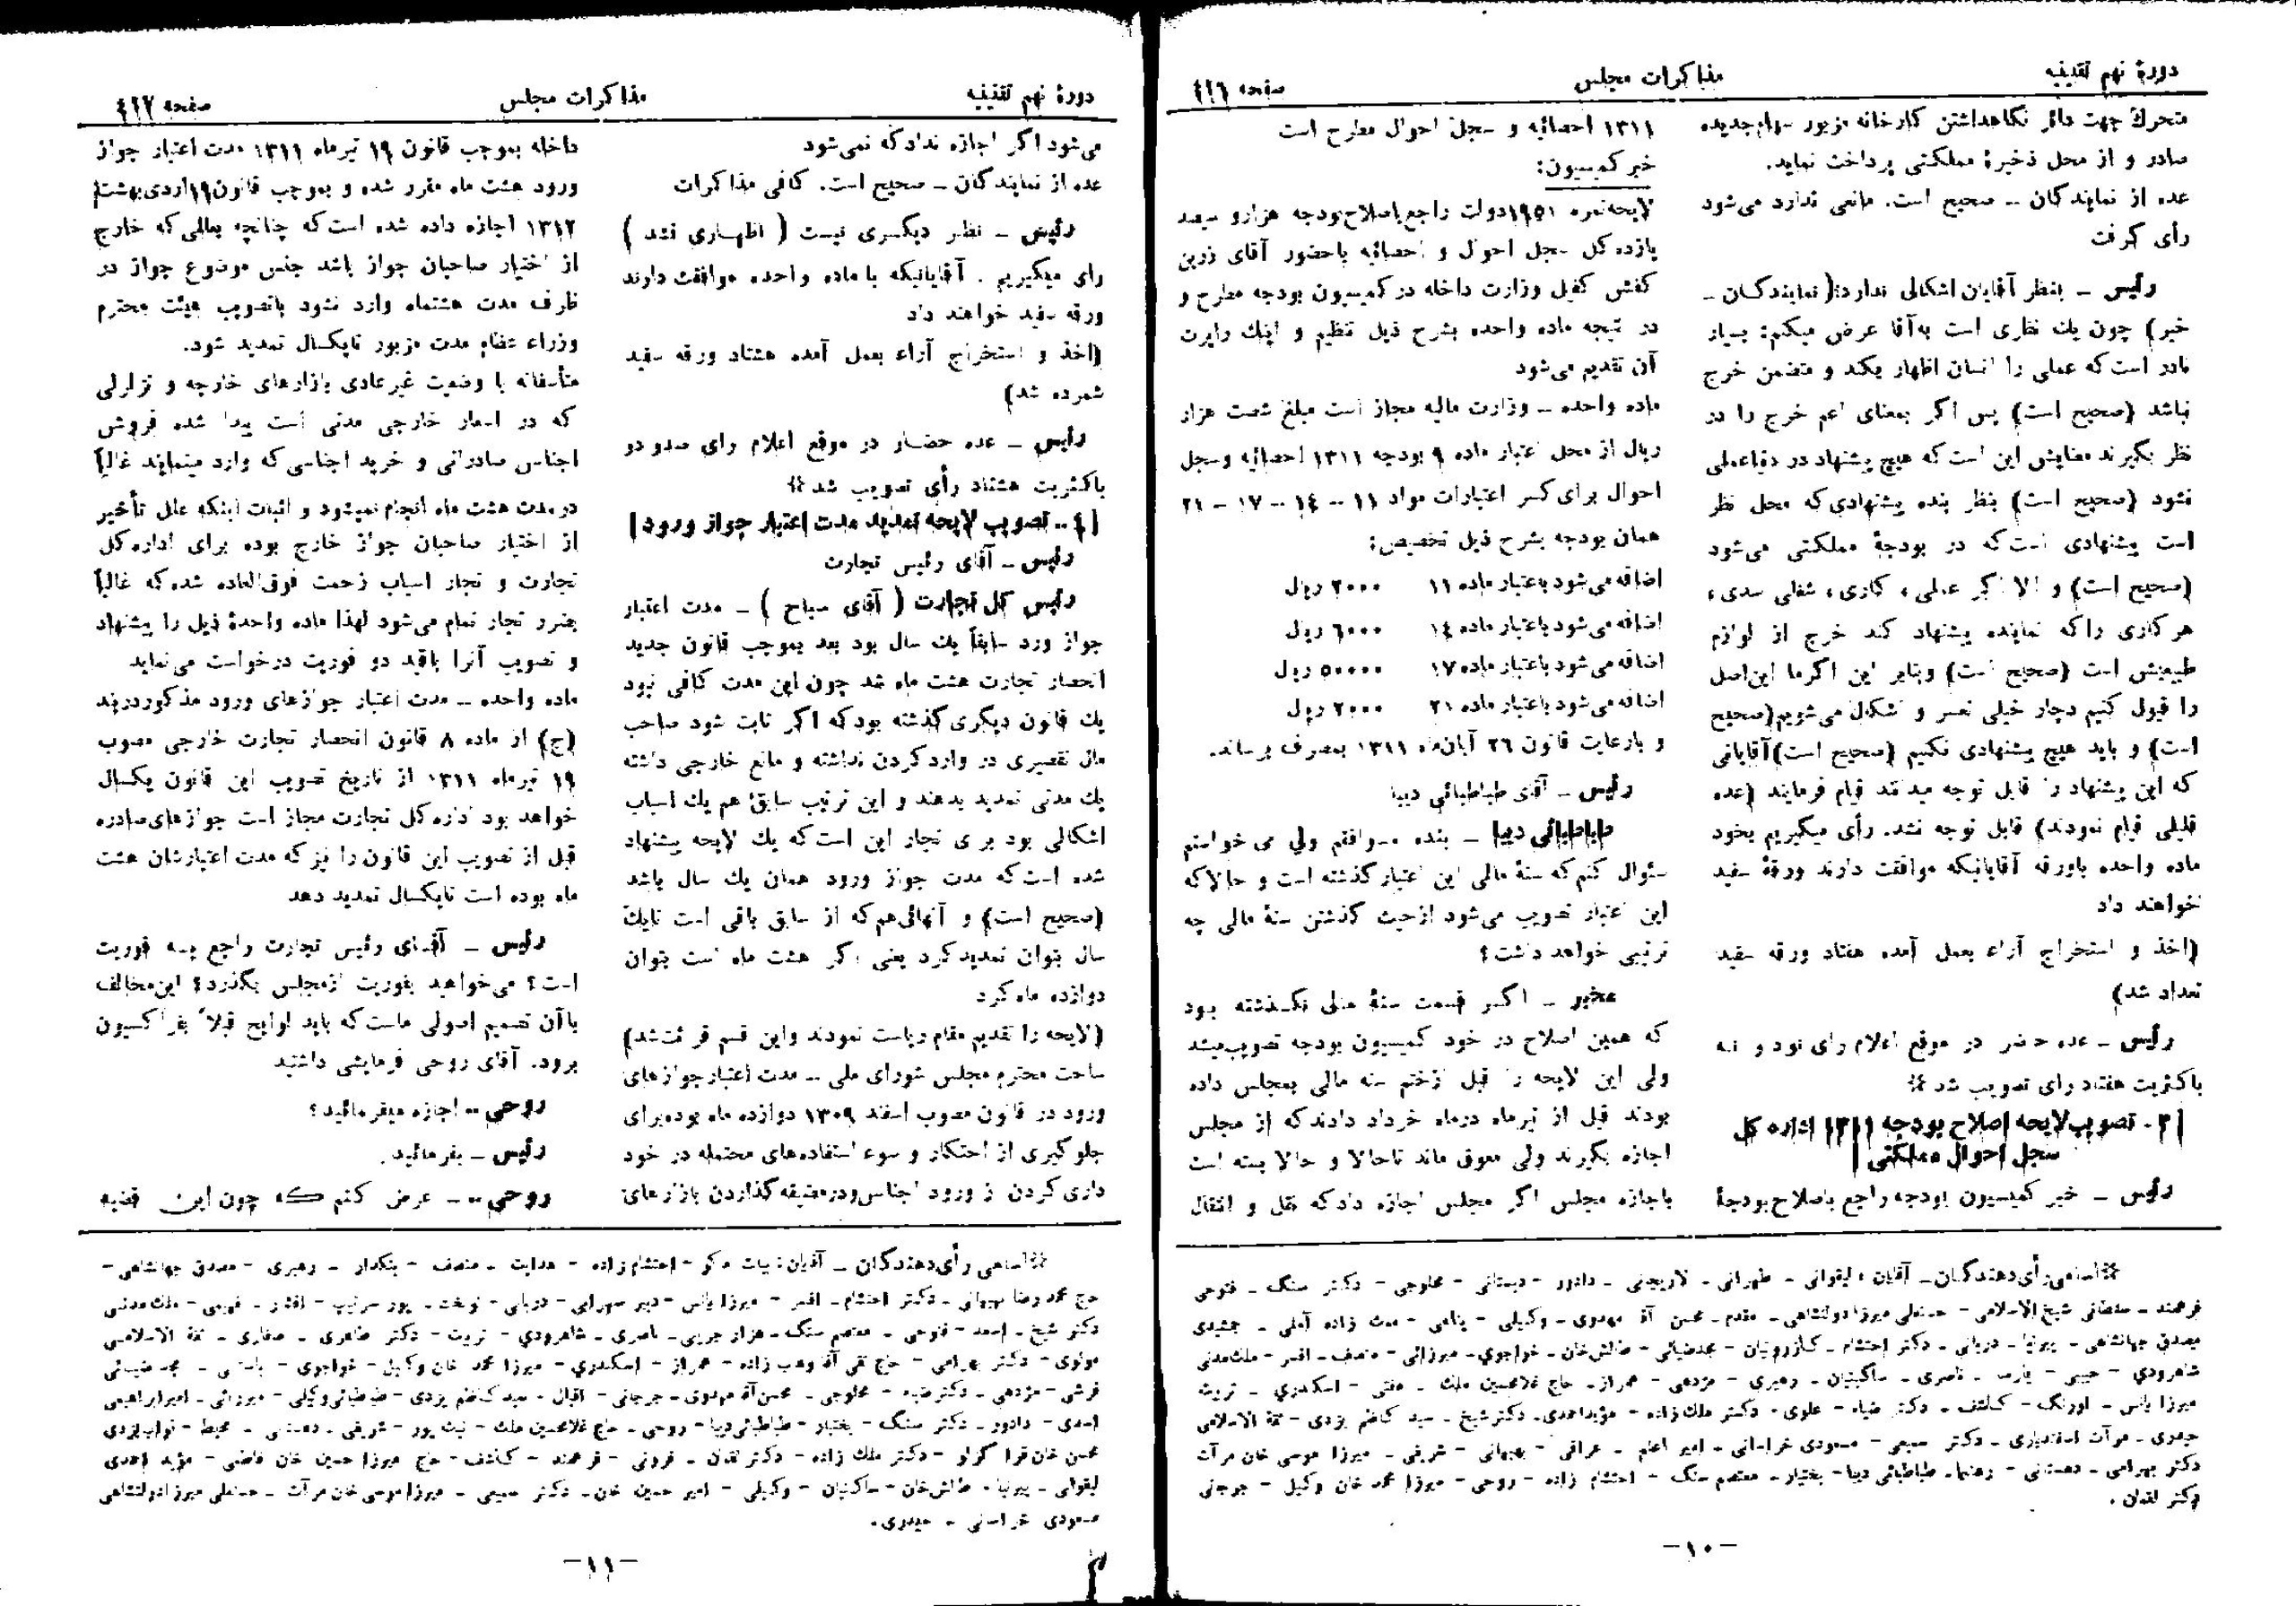 دورهٔ نهم تقنینیه
مذاکرات مجلس
صفحه ٤١٦
متحرک جهت دائر نگاهداشتن کارخانه مزبور سهام جدیده
صادر و از محل ذخیرهٔ مملکتی پرداخت نماید.
عده از نمایندگان ـ صحیح است. مانعی ندارد می‌شود
رأی گرفت
رئیس ـ بنظر آقایان اشکالی ندارد؟ (نمایندگان ـ
خیر) چون یک نظری است به‌آقا عرض میکنم: بسیار
نادر است که عملی را انسان اظهار بکند و متضمن خرج
نباشد (صحیح است) پس اگر بمعنای اعم خرج را در
نظر بگیرند معنایش این است که هیچ پیشنهاد در دنیا عملی
نشود (صحیح است) بنظر بنده پیشنهادی که محل نظر
است پیشنهادی است که در بودجهٔ مملکتی می‌شود
(صحیح است) و الا اگر عملی، کاری، شغلی سدی،
هر کاری را که نماینده پیشنهاد کند خرج از لوازم
طبیعیش است (صحیح است) و بنابر این اگر ما این اصل
را قبول کنیم دچار خیلی تعسر و اشکال می‌شویم (صحیح
است) و باید هیچ پیشنهادی نکنیم (صحیح است) آقایانی
که این پیشنهاد را قابل توجه میدانند قیام فرمایند (عده
قلیلی قیام نمودند) قابل توجه نشد. رأی میگیریم بخود
ماده واحده باورقه آقایانیکه موافقت دارند ورقهٔ سفید
خواهند داد
(اخذ و استخراج آراء بعمل آمده هفتاد ورقه سفید
تعداد شد)
رئیس ـ عده حاضر در موقع اعلام رای نود و نه
باکثریت هفتاد رای تصویب شد *
[ ٣ ـ تصویب لایحه اصلاح بودجه ١٣١١ اداره کل
سجل احوال مملکتی ]
رئیس ـ خبر کمیسیون بودجه راجع باصلاح بودجهٔ
١٣١١ احصائیه و سجل احوال مطرح است
خبر کمیسیون:
لایحه نمره ١٩٥١ دولت راجع باصلاح بودجه هزار و سیصد
یازده کل سجل احوال و احصائیه باحضور آقای زرین
کفش کفیل وزارت داخله در کمیسیون بودجه مطرح و
در نتیجه ماده واحده بشرح ذیل تنظیم و اینک راپرت
آن تقدیم می‌شود
ماده واحده ـ وزارت مالیه مجاز است مبلغ شصت هزار
ریال از محل اعتبار ماده ٩ بودجه ١٣١١ احصائیه و سجل
احوال برای کسر اعتبارات مواد ١١ - ١٤ - ١٧ - ٢١
همان بودجه بشرح ذیل تخصیص:
اضافه می‌شود باعتبار ماده ١١ ٢٠٠٠ ریال
اضافه می‌شود باعتبار ماده ١٤ ٦٠٠٠ ریال
اضافه می‌شود باعتبار ماده ١٧ ٥٠٠٠٠ ریال
اضافه می‌شود باعتبار ماده ٢١ ٢٠٠٠ ریال
و بارعایت قانون ٢٦ آبان‌ماه ١٣١١ بمصرف برساند.
رئیس ـ آقای طباطبائی دیبا
طباطبائی دیبا ـ بنده موافقم ولی می خواستم
سئوال کنم که سنهٔ مالی این اعتبار گذشته است و حالا که
این اعتبار تصویب می‌شود از حیث گذشتن سنهٔ مالی چه
ترتیبی خواهد داشت؟
مخبر ـ اگر قسمت سنهٔ مالی نگذشته بود
که همین اصلاح در خود کمیسیون بودجه تصویب میشد
ولی این لایحه را قبل از ختم سنه مالی بمجلس داده
بودند قبل از تیرماه در ماه خرداد دادند که از مجلس
اجازه بگیرند ولی معوق ماند تا حالا و حالا بسته است
باجازه مجلس اگر مجلس اجازه داد که نقل و انتقال
* اسامی رأی دهندگان ـ آقایان: لیقوانی ـ طهرانی ـ لاریجانی ـ دادور - دبستانی - مخلوجی - دکتر سنگ ـ فتوحی
فرهمند ـ سلطانی شیخ‌الاسلامی - حسنعلی میرزا دولتشاهی ـ مقدم ـ محسن آقا مهدوی ـ وکیلی - پناهی - ملک زاده آملی ـ جمشیدی
مصدق جهانشاهی ـ پیرنیا ـ دریانی ـ دکتر احتشام ـ کازرونیان - مجد ضیائی - طالش‌خان ـ خواجوی ـ میرزائی - منصف ـ افسر - ملک‌مدنی
شاهرودی - حبیبی - پارسا ـ ناصری ـ ساگینیان ـ رهبری - مژدهی - همراز ـ حاج غلامحسین ملک ـ مفتی - اسکندری ـ تربیت
میرزا یانس ـ اورنگ - کاشف ـ دکتر ضیاء - علوی - دکتر ملک‌زاده - مؤید احمدی ـ دکتر شیخ ـ سید کاظم یزدی - ثقة الاسلامی
حیدری ـ مرآت اسفندیاری ـ دکتر سمیعی - مسعودی خراسانی ـ امیر اعلم ـ عراقی - بهبهانی - شریفی ـ میرزا موسی خان مرآت
دکتر بهرامی ـ دهستانی - رهنما ـ طباطبائی دیبا - بختیار ـ معتصم سنگ - احتشام زاده - روحی - میرزا محمد خان وکیل - جرجانی
دکتر لقمان.
-١٠-
دورهٔ نهم تقنینیه
مذاکرات مجلس
صفحه ٤١٧
می‌شود اگر اجازه نداد که نمی‌شود
عده از نمایندگان ـ صحیح است. کافی مذاکرات
رئیس ـ نظر دیگری نیست ( اظهاری نشد )
رای میگیریم . آقایانیکه با ماده واحده موافقت دارند
ورقه سفید خواهند داد
(اخذ و استخراج آراء بعمل آمده هشتاد ورقه سفید
شمرده شد)
رئیس ـ عده حضار در موقع اعلام رای صد و دو
باکثریت هشتاد رأی تصویب شد *
[ ٤ ـ تصویب لایحه تمدید مدت اعتبار جواز ورود ]
رئیس ـ آقای رئیس تجارت
رئیس کل تجارت ( آقای سیاح ) ـ مدت اعتبار
جواز ورد سابقاً یک سال بود بعد بموجب قانون جدید
انحصار تجارت هشت ماه شد چون این مدت کافی نبود
یک قانون دیگری گذشته بود که اگر ثابت شود صاحب
مال تقصیری در وارد کردن نداشته و مانع خارجی داشته
یک مدتی تمدید بدهند و این ترتیب سابق هم یک اسباب
اشکالی بود برای تجار این است که یک لایحه پیشنهاد
شده است که مدت جواز ورود همان یک سال باشد
(صحیح است) و آنهائی هم که از سابق باقی است تا یک
سال بتوان تمدید کرد یعنی اگر هشت ماه است بتوان
دوازده ماه کرد
(لایحه را تقدیم مقام ریاست نمودند و این قسم قرائت شد)
ساحت محترم مجلس شورای ملی ـ مدت اعتبار جوازهای
ورود در قانون مصوب اسفند ١٣٠٩ دوازده ماه بوده برای
جلوگیری از احتکار و سوء استفاده‌های محتمله در خود
داری کردن از ورود اجناس و در مضیقه گذاردن بازارهای
داخله بموجب قانون ١٩ تیرماه ١٣١١ مدت اعتبار جواز
ورود هشت ماه مقرر شده و بموجب قانون ١٩ اردی‌بهشت
١٣١٢ اجازه داده شده است که چنانچه بعللی که خارج
از اختیار صاحبان جواز باشد جنس موضوع جواز در
ظرف مدت هشتماه وارد نشود باتصویب هیئت محترم
وزراء عظام مدت مزبور تا یکسال تمدید شود.
متأسفانه با وضعیت غیر عادی بازارهای خارجه و تزلزلی
که در اسعار خارجی مدتی است پیدا شده فروش
اجناس صادراتی و خرید اجناسی که وارد مینمایند غالباً
در مدت هشت ماه انجام نمیشود و اثبات اینکه علل تأخیر
از اختیار صاحبان جواز خارج بوده برای اداره کل
تجارت و تجار اسباب زحمت فوق‌العاده شده که غالباً
بضرر تجار تمام می‌شود لهذا ماده واحدهٔ ذیل را پیشنهاد
و تصویب آنرا باقید دو فوریت درخواست می‌نماید
ماده واحده ـ مدت اعتبار جوازهای ورود مذکور در بند
(ج) از ماده ٨ قانون انحصار تجارت خارجی مصوب
١٩ تیرماه ١٣١١ از تاریخ تصویب این قانون یکسال
خواهد بود اداره کل تجارت مجاز است جوازهای صادره
قبل از تصویب این قانون را نیز که مدت اعتبارشان هشت
ماه بوده است تا یکسال تمدید دهد
رئیس ـ آقای رئیس تجارت راجع به فوریت
است؟ می‌خواهید بفوریت از مجلس بگذرد؟ این مخالف
با آن تصمیم اصولی ماست که باید لوایح قبلاً بفراکسیون
برود. آقای روحی فرمایشی داشتید
روحی ـ اجازه میفرمائید؟
رئیس ـ بفرمائید.
روحی ـ عرض کنم که چون این قضیه
* اسامی رأی دهندگان ـ آقایان: بیات ماکو - احتشام زاده - هدایت ـ منصف - بنکدار ـ رهبری - مصدق جهانشاهی -
حاج محمد رضا بهبهانی ـ دکتر احتشام ـ افسر - میرزا یانس - دبیر سهرابی - دریانی - نوبخت ـ پور سرتیپ - افشار ـ فهیمی - ملک‌مدنی
دکتر شیخ ـ اسعد - فتوحی ـ معتصم سنگ ـ هزار جریبی ـ ناصری ـ شاهرودی - تربیت - دکتر طاهری ـ صفاری ـ ثقة الاسلامی
مولوی - دکتر بهرامی - حاج تقی آقا وهاب زاده - همراز - اسکندری - میرزا محمد خان وکیل - خواجوی - ـ مجد ضیائی
قرشی - مژدهی ـ دکتر ضیاء - مخلوجی ـ محسن آقا مهدوی ـ جرجانی - اقبال ـ سید کاظم یزدی - طباطبائی وکیلی - میرزائی ـ امیر ابراهیمی
اسدی - دادور ـ دکتر سنگ - بختیار - طباطبائی دیبا - روحی ـ حاج غلامحسین ملک - نیک پور - شریفی ـ دهستانی ـ محیط - نواب یزدی
محسن خان قراگزلو - دکتر ملک زاده - دکتر لقمان ـ قزونی - فرهمند - کاشف - حاج میرزا حسین خان فاضلی - مؤید احمدی
لیقوانی ـ پیرنیا ـ طالش‌خان - ساگینیان - وکیلی - امیر حسین خان ـ دکتر سمیعی ـ میرزا موسی خان مرآت ـ حسنعلی میرزا دولتشاهی
مسعودی خراسانی ـ حیدری.
-١١-